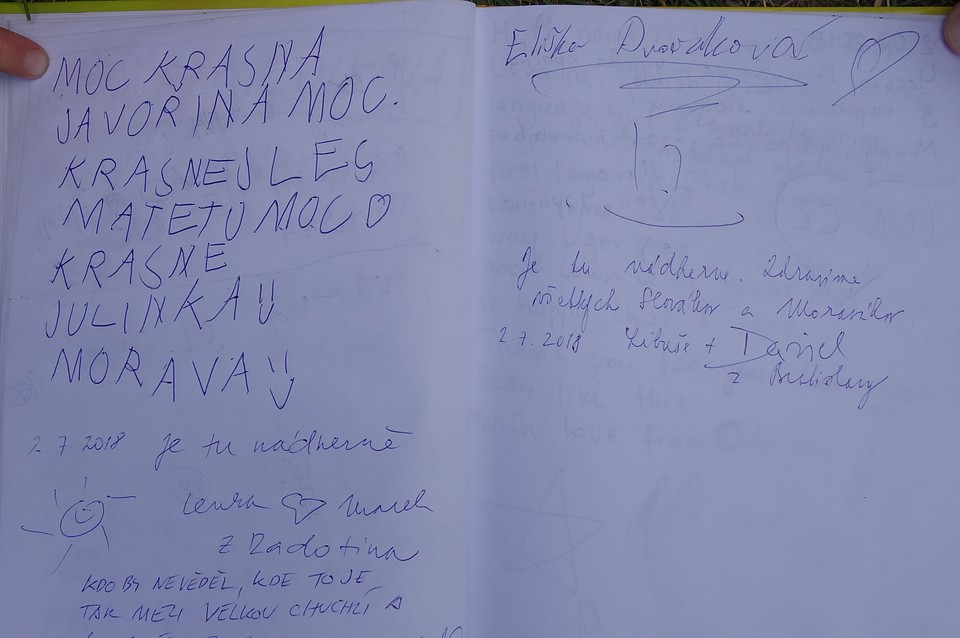 MOC KRASNA
JAVOŘINA MOC.
KRASNEJ LES
MATE TU MOC
KRASNE
JULINKA
MORAVA
2.7.2018 Je tu nádherně
Lenka Marek
Z Radotina
KDO BY NEVĚDĚL, KDE TO JE
TAK MEZI VELKOU CHUCHLÍ A
Eliška Dvořáková
Je tu nádherne. Zdravíme
všetkých Slovákov a Moravákov
2.7.2018 Libuše + Daniel
z Bratislavy